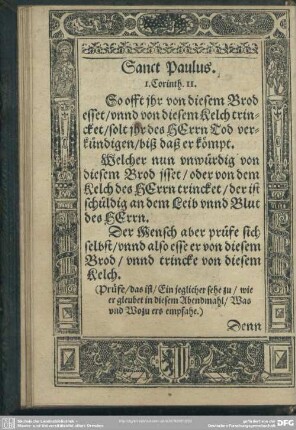 Sanct Paulus.
1. Corinth. 11.
So offt jhr von diesem Brod
esset/ vnnd von diesem Kelch trin-
cket/ solt jhr des HErrn Tod ver-
kündigen/ biß daß er kömpt.
Welcher nun vnwürdig von
diesem Brod jsset/ oder von dem
Kelch des HErrn trincket/ der ist
schüldig an dem Leib vnnd Blut
des HErrn.
Der Mensch aber prüfe sich
selbst/ vnnd also esse er von diesem
Brod/ vnnd trincke von diesem
Kelch.
(Prüfe/ das ist/ Ein jeglicher sehe zu/ wie
er gleubet in diesem Abendmahl/ Was
vnd Wozu ers empfahe.)
Denn
DFG